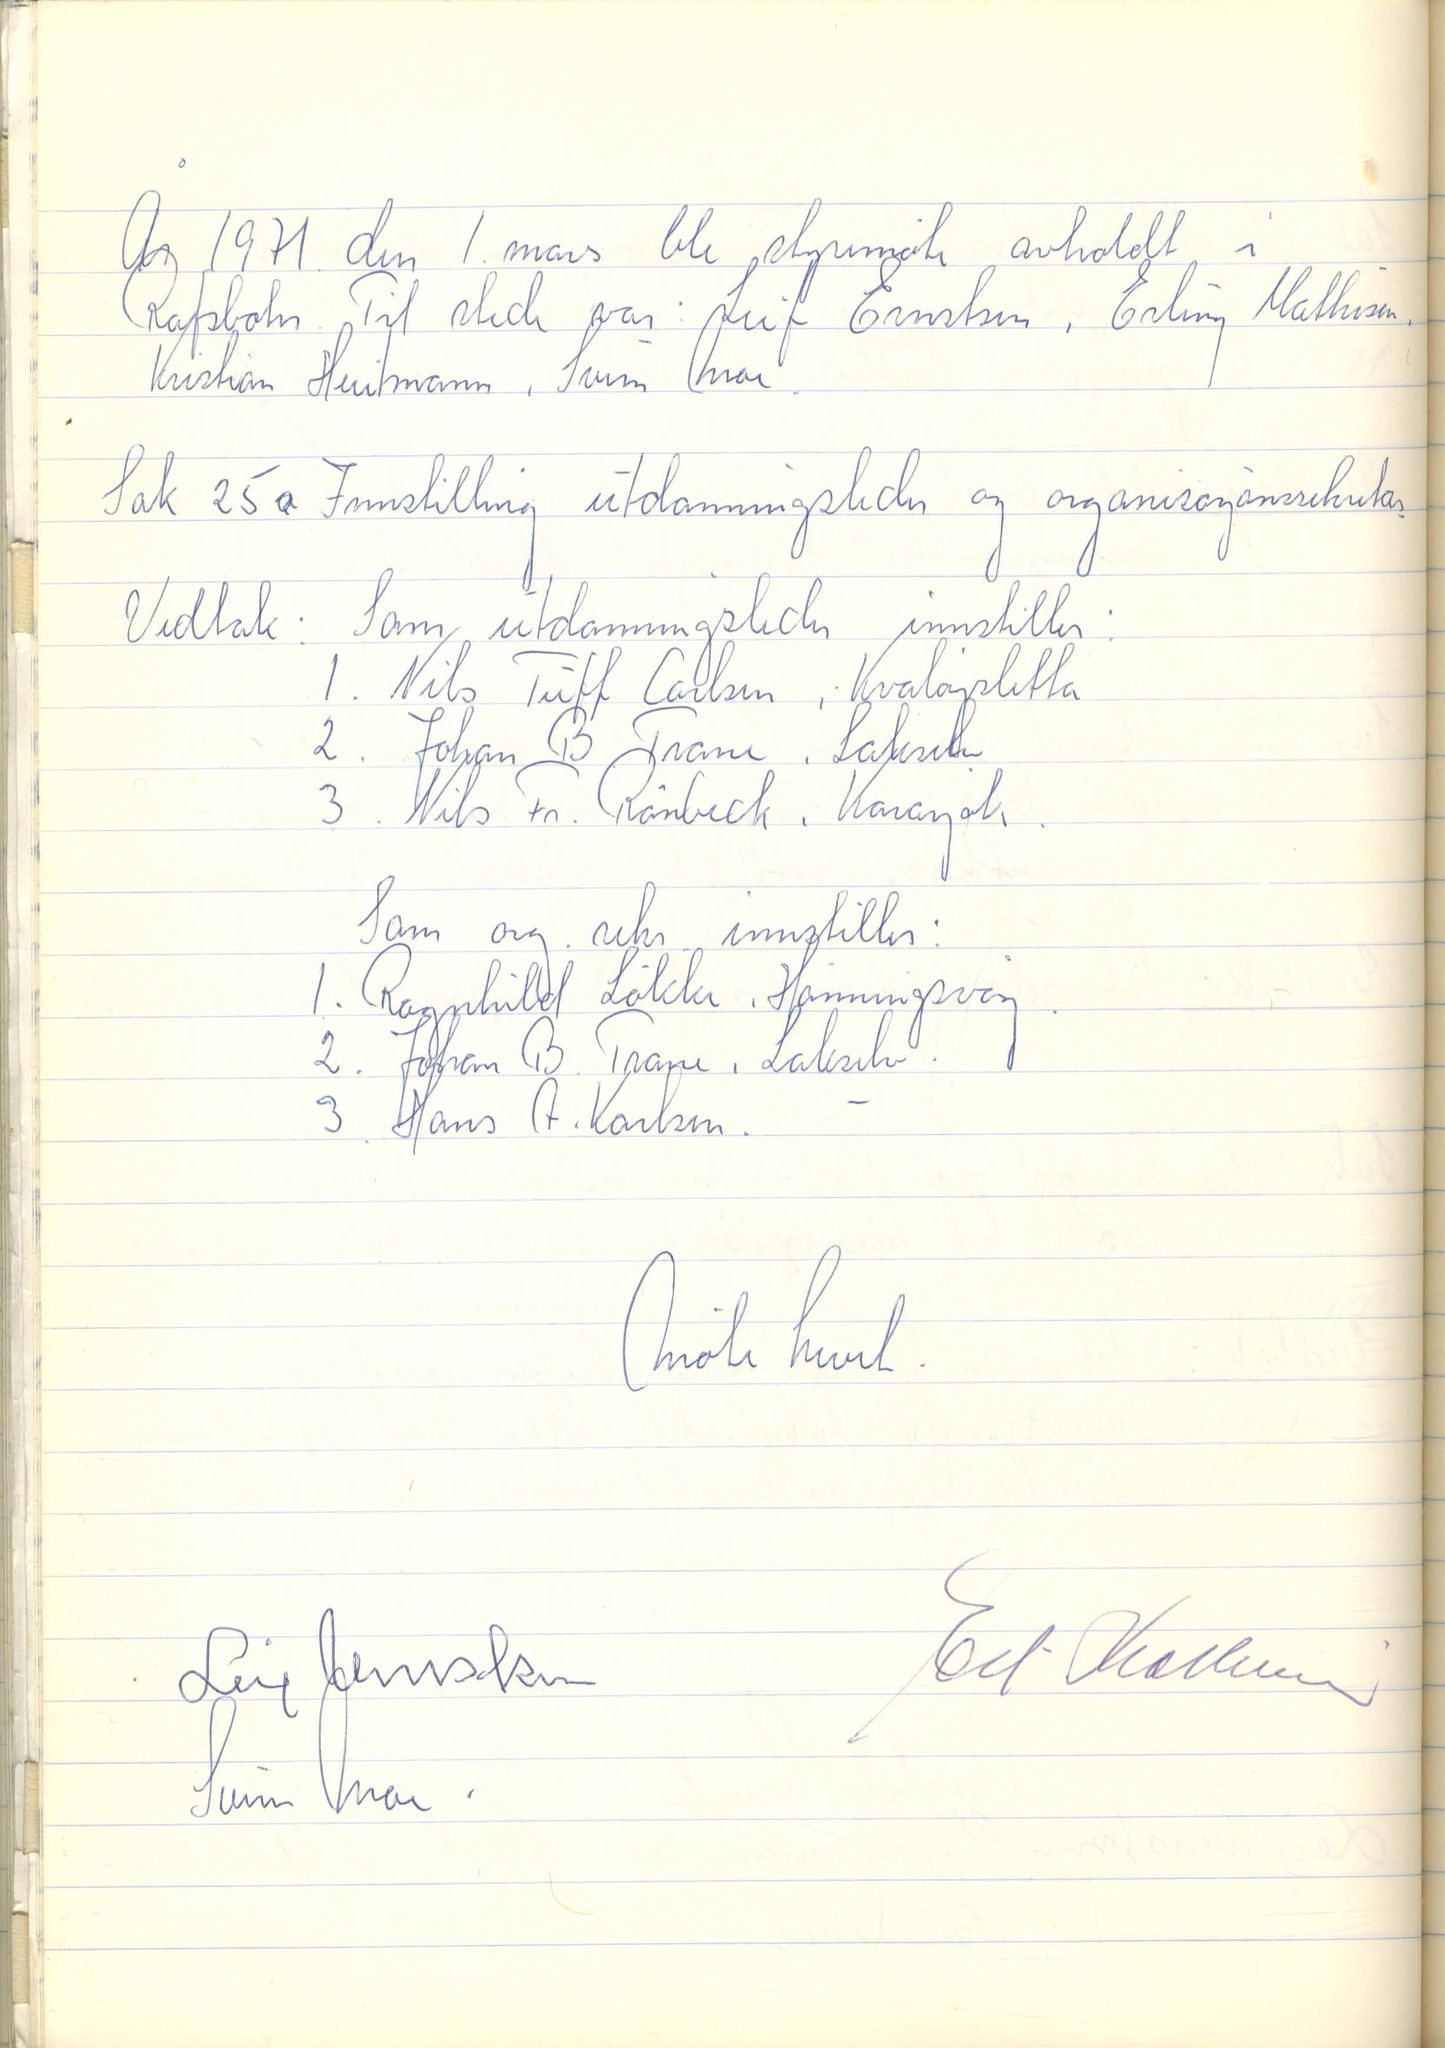 År 1971 den 1. mars ble styremøte avholdt i
Rafsbotn. Til stede var: Leif Ernstsen, Erling Mathisen,
Kristian Heitmann, Svein Moe.
Sak 25a Innstilling utdanningsleder og organisasjonssekretær
Vedtak: Som utdanningsleder innstilles:
1. Nils Tuff Carlsen, Kvaløysletta
2. Johan B Trane, Lakselv
3. Nils Fr. Rönbeck, Karasjok.
Som org. sekr. innstilles:
1. Ragnhild Lökke, Honningsvåg.
2. Johan B. Trane, Lakselv.
3. Hans A. Karlsen. –
Møte hevet.
Leif Ernstsen
Erl. Mathisen
Svein Moe.